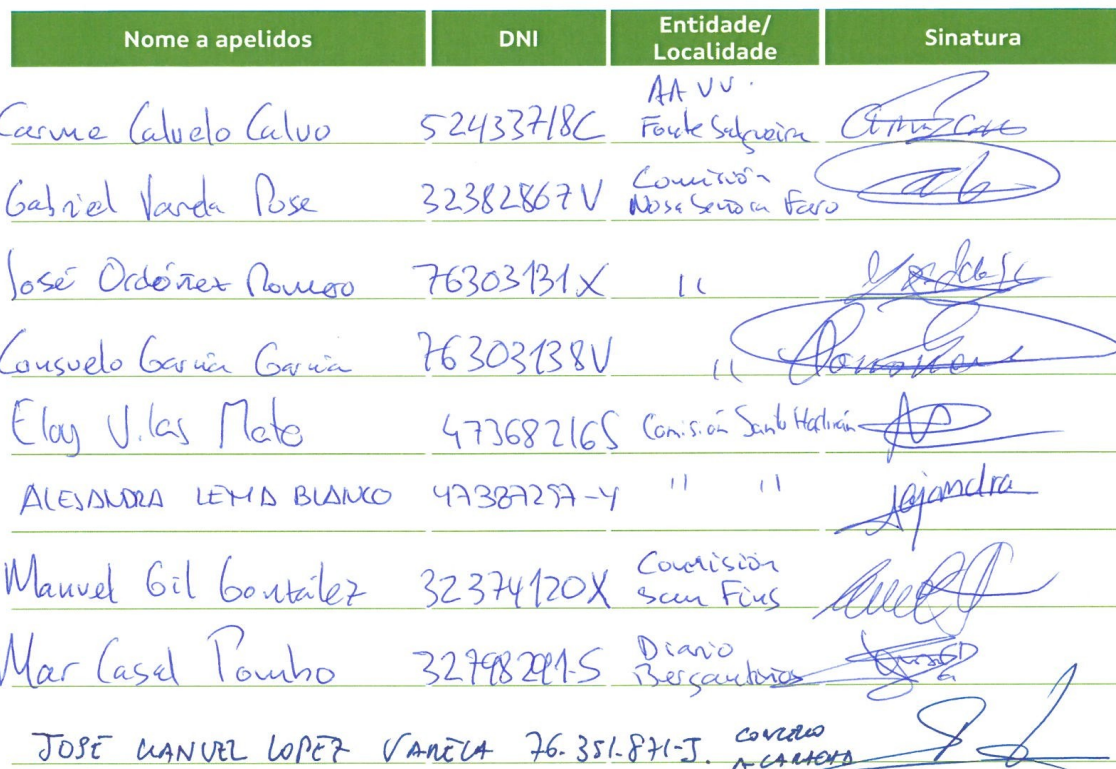 Nome a apelidos DNI Entidade/ Localidade Sinatura
Carme Calvelo Calvo 52433718C AA VV. Fonte Salgueira
Gabriel Varela Pose 32382867V Comisión Nosa Señora Faro
José Ordóñez Romero 76303131X "
Consuelo García García 76303138V "
Eloy Vilas Mato 47368216S Comisión Santo Hadrián
ALEJANDRA LEMA BLANCO 47387257-Y " "
Manuel Gil González 32374120X Comisión San Fins
Mar Casal Pombo Diario Bergantiños
JOSE MANUEL LOPEZ VARELA 76.351.871-J. CONCELLO